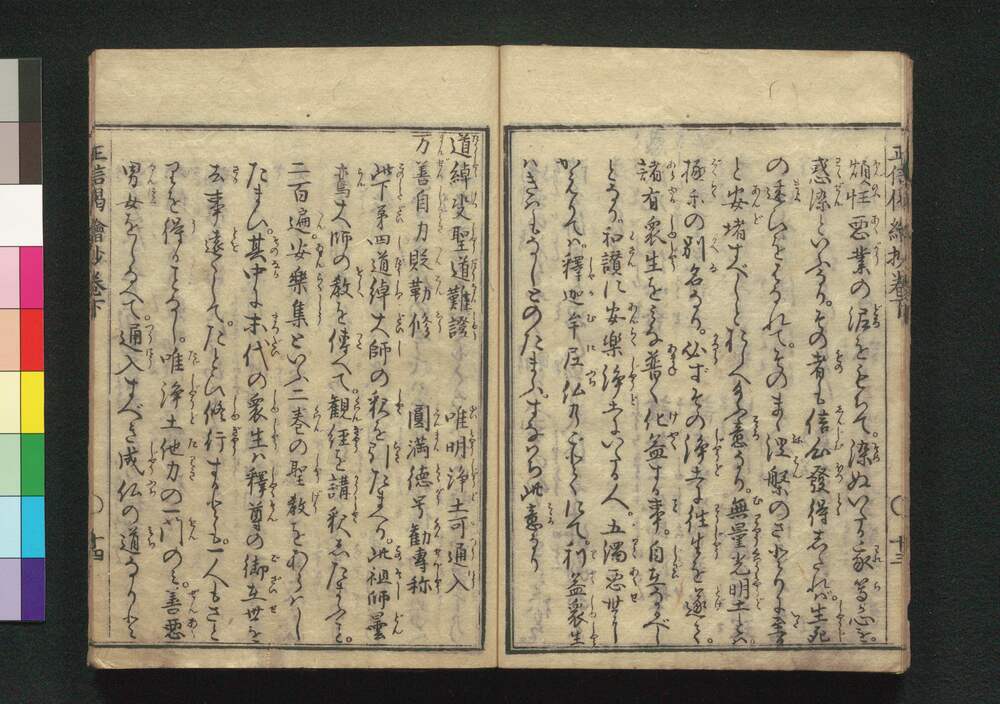 煩惱惡業の泥をもちて。染ぬいする家等の心を
惑染といふなり。その者も信心發得したれば。生死
の迷ひをまぬかれて。そのまゝ涅槃のさとりを書
と安堵すべしとおしへ給ふ意なり。無量光明土とは
極樂の別名なり。必ずその浄土に往生を遂て。
諸有衆生をみな普く化益する事。自在なるべし
となり。和讃に安樂浄土にいたる人。五濁惡世にか
かへりては。釋迦牟尼仏のごとくにて。利益衆生
はきはもなしとのたまふ。すなはち此意なり
正信偈繪抄卷下
十三
道綽決聖道難證 唯明浄土可通入
万善自力貶勤修 圓満徳号勸專称
此下第四道綽大師の釈を引たまへり。此祖師曇
鸞大師の教を傳へて観經を講釈したまふこと
二百遍。安樂集といふ二巻の聖教をあらはし
たまひ。其中に末代の衆生ハ釋尊の御在世を
去事遠くして。たとひ修行するとも。一人もさと
りを得ることなし。唯浄土他力の一門のみ。善惡
男女をしなべて。通入すべき成仏の道なりと
正信偈繪抄卷下
十四